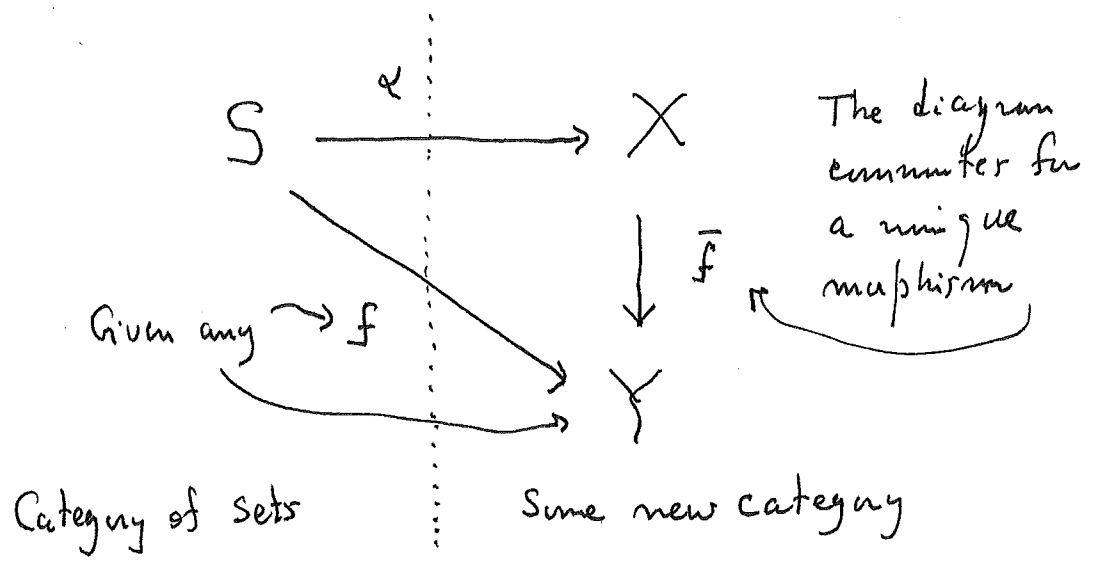 α
S X
The diagram
commutes for
a unique
morphism
f̄
Given any f
Y
Category of sets
Some new category